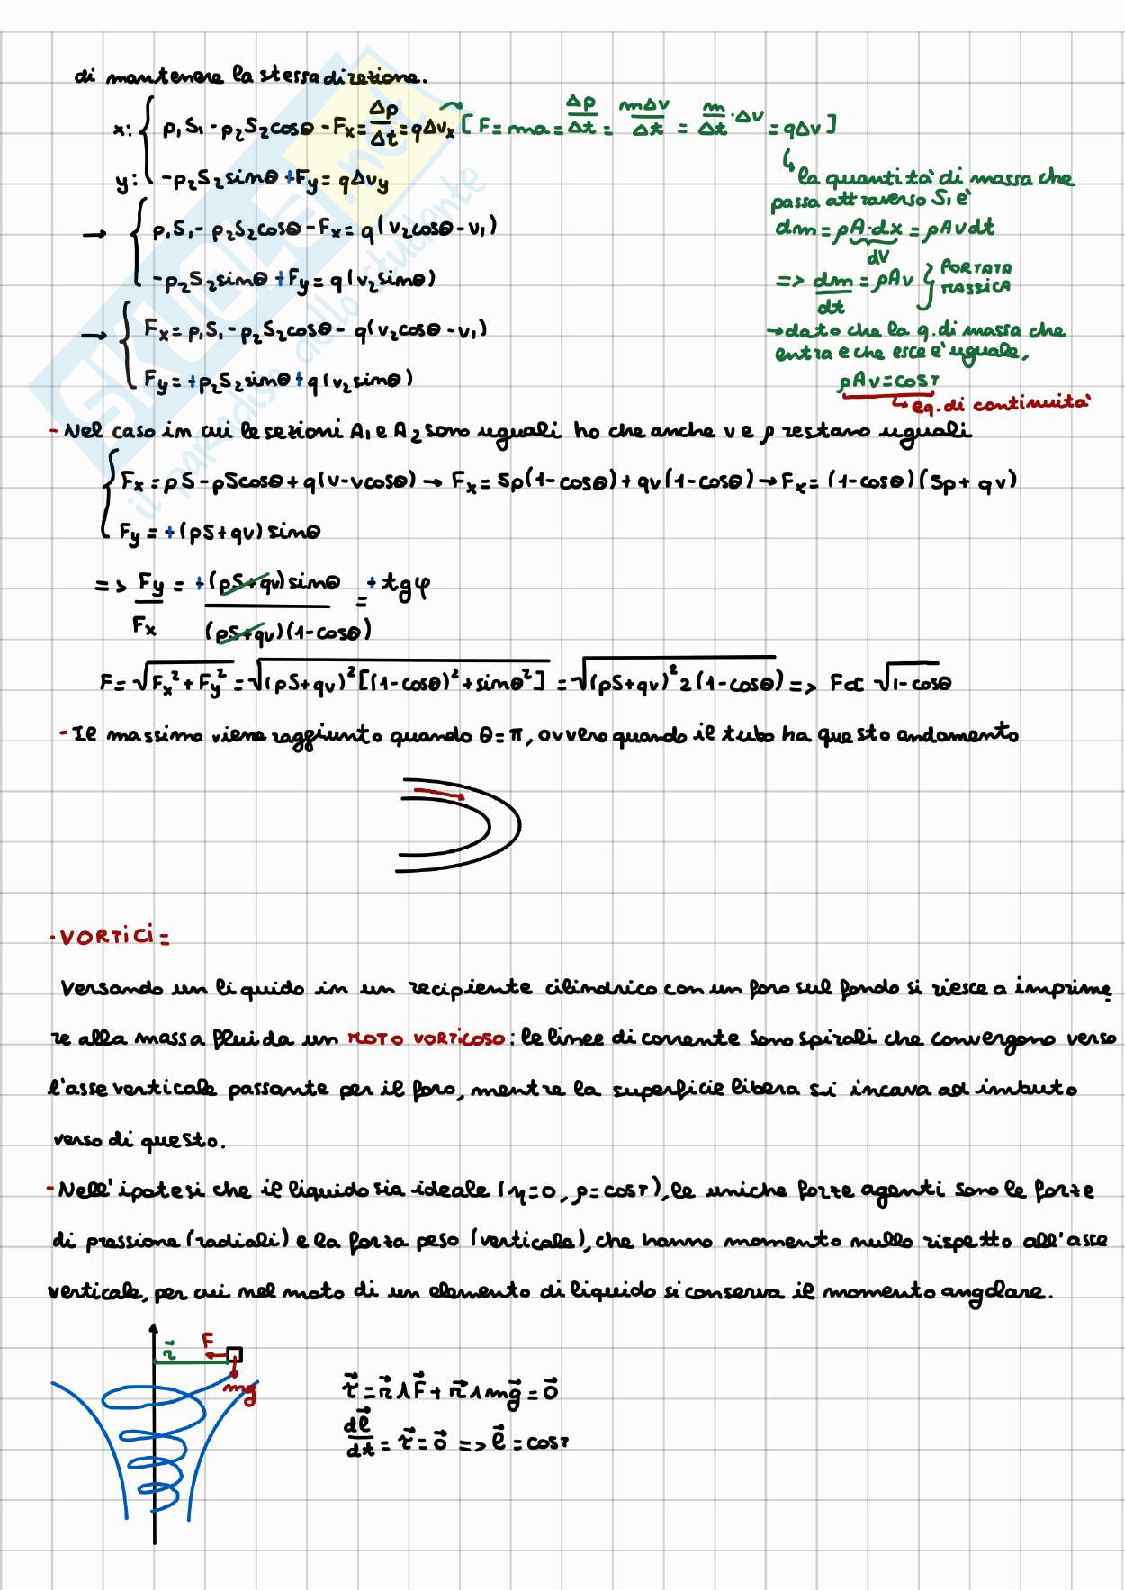 di mantenere la stessa direzione.
x: p₁S₁-p₂S₂cosθ-Fx=Δp/Δt=qΔvx [F=ma=Δp/Δt=mΔv/Δt=m/Δt·Δv=qΔv]
y: -p₂S₂sinθ+Fy=qΔvy
↳ la quantità di massa che
passa attraverso S₁ è
→ p₁S₁-p₂S₂cosθ-Fx=q(v₂cosθ-v₁)
dm=ρA·dx=ρAvdt
dV
-p₂S₂sinθ+Fy=q(v₂sinθ)
=> dm/dt=ρAv } PORTATA
MASSICA
→ Fx=p₁S₁-p₂S₂cosθ-q(v₂cosθ-v₁)
→dato che la q. di massa che
entra e che esce è uguale,
Fy=+p₂S₂sinθ+q(v₂sinθ)
ρAv=cosτ
↳eq. di continuità
-Nel caso in cui le sezioni A₁ e A₂ sono uguali ho che anche v e p restano uguali
Fx=pS-pScosθ+q(v-vcosθ)→Fx=Sp(1-cosθ)+qv(1-cosθ)→Fx=(1-cosθ)(Sp+qv)
Fy=+(pS+qv)sinθ
=> Fy/Fx=+(pS+qv)sinθ/(pS+qv)(1-cosθ)=+tgφ
F=√Fx²+Fy²=√(pS+qv)²[(1-cosθ)²+sinθ²]=√(pS+qv)²2(1-cosθ)=> F∝√1-cosθ
-Il massimo viene raggiunto quando θ=π, ovvero quando il tubo ha questo andamento
-VORTICI=
Versando un liquido in un recipiente cilindrico con un foro sul fondo si riesce a imprime
re alla massa fluida un MOTO VORTICOSO: le linee di corrente sono spirali che convergono verso
l'asse verticale passante per il foro, mentre la superficie libera si incava ad imbuto
verso di questo.
-Nell'ipotesi che il liquido sia ideale (η=0, ρ=cosτ), le uniche forze agenti sono le forze
di pressione (radiali) e la forza peso (verticale), che hanno momento nullo rispetto all'asse
verticale, per cui nel moto di un elemento di liquido si conserva il momento angolare.
r⃗ F
mg
τ⃗=r⃗∧F⃗+r⃗∧mg⃗=0⃗
dl⃗/dt=τ⃗=0⃗ => l⃗=cosτ
SKUOLA.net
il paradiso dello studente